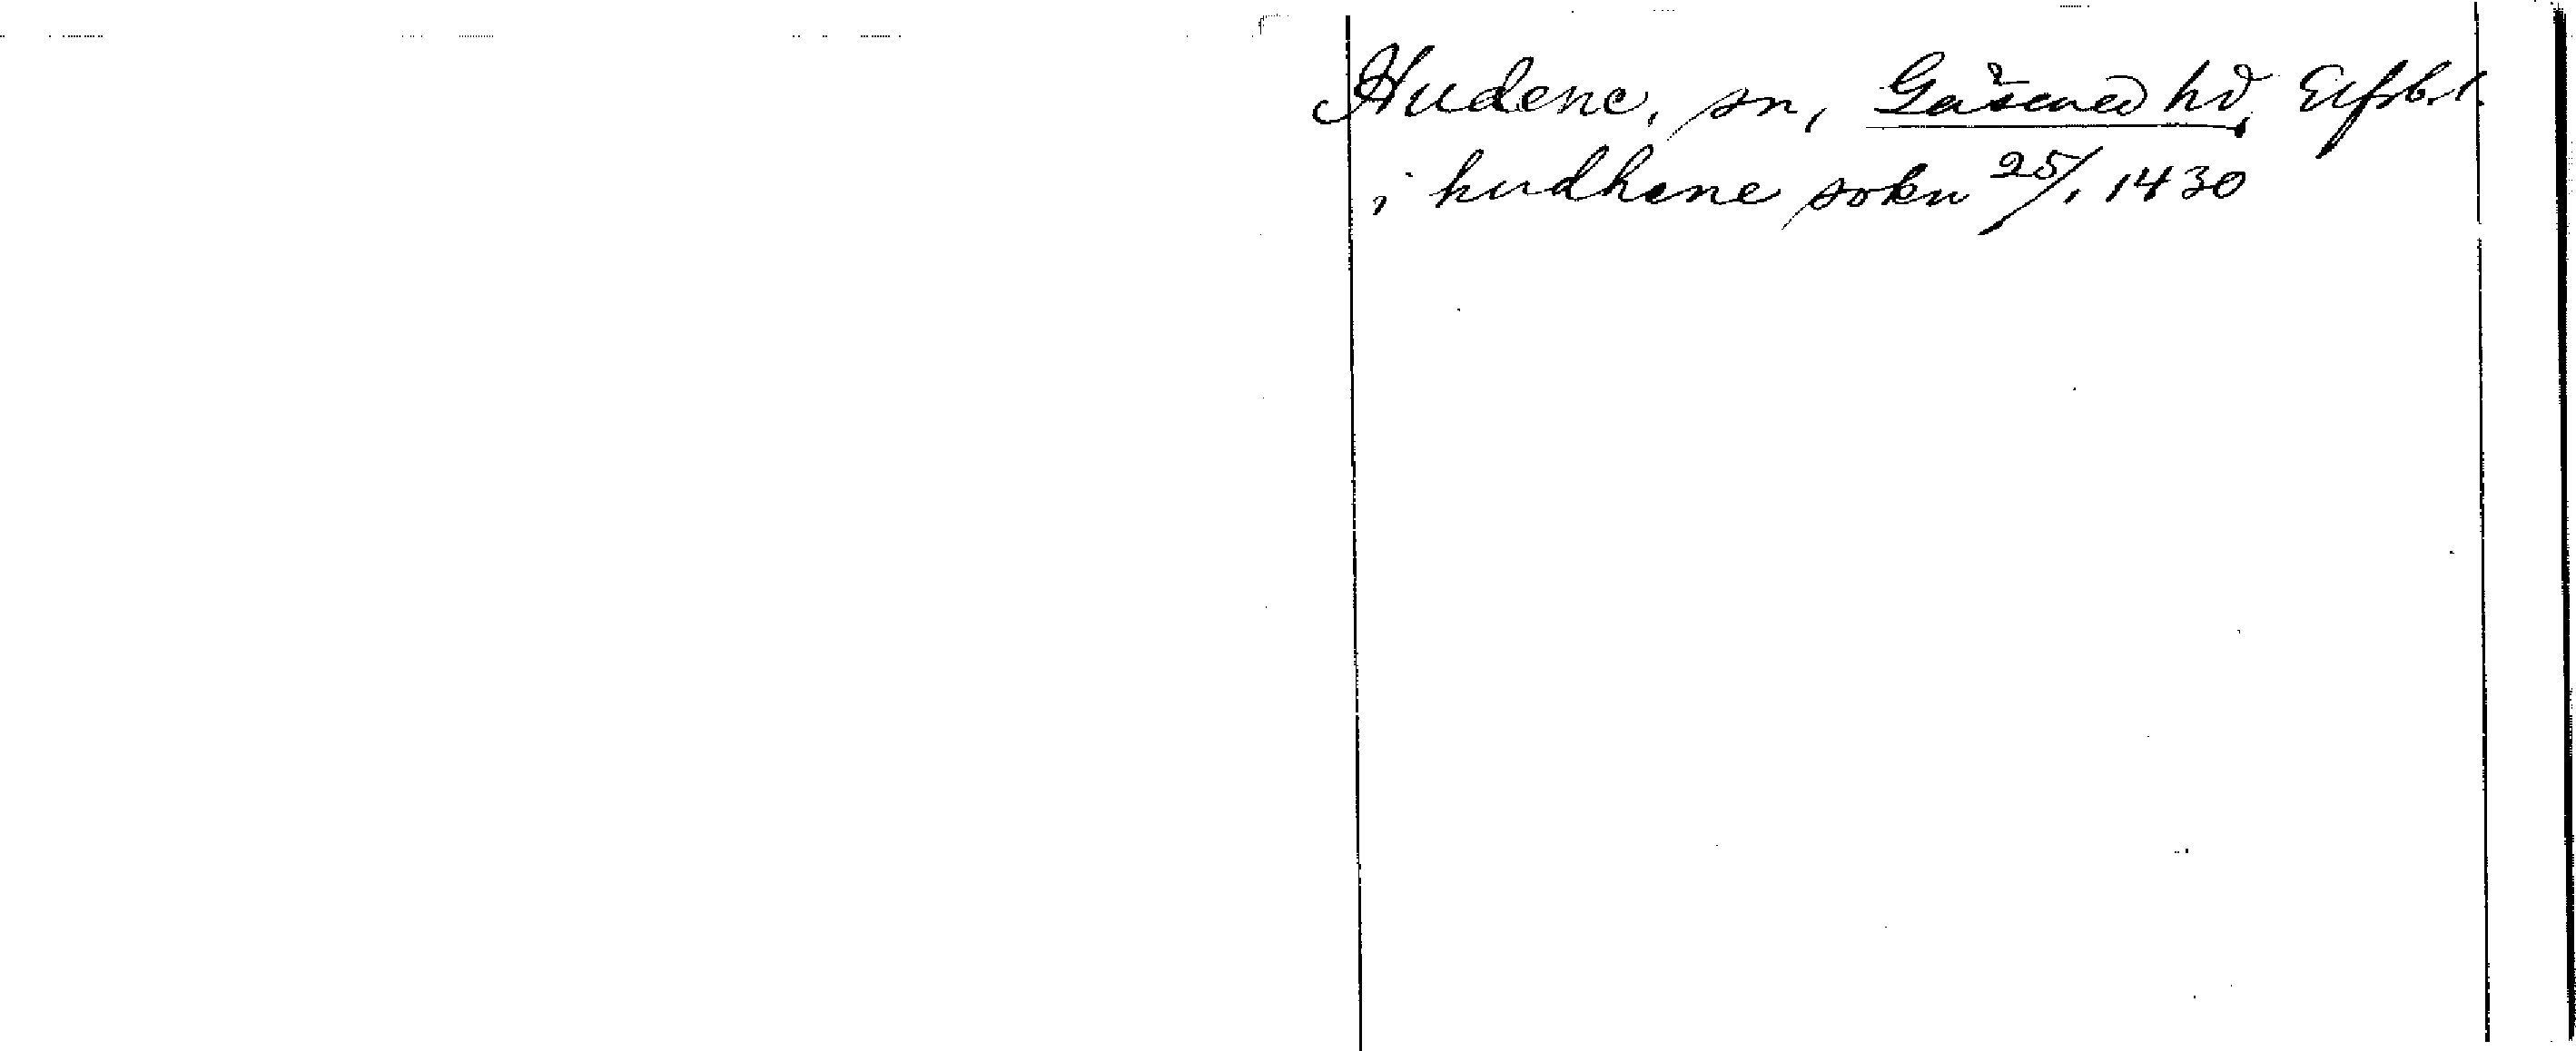 Hudene, sn, Gäsened hd, Elfsb. l.
i hudhene sokn 25/1 1430